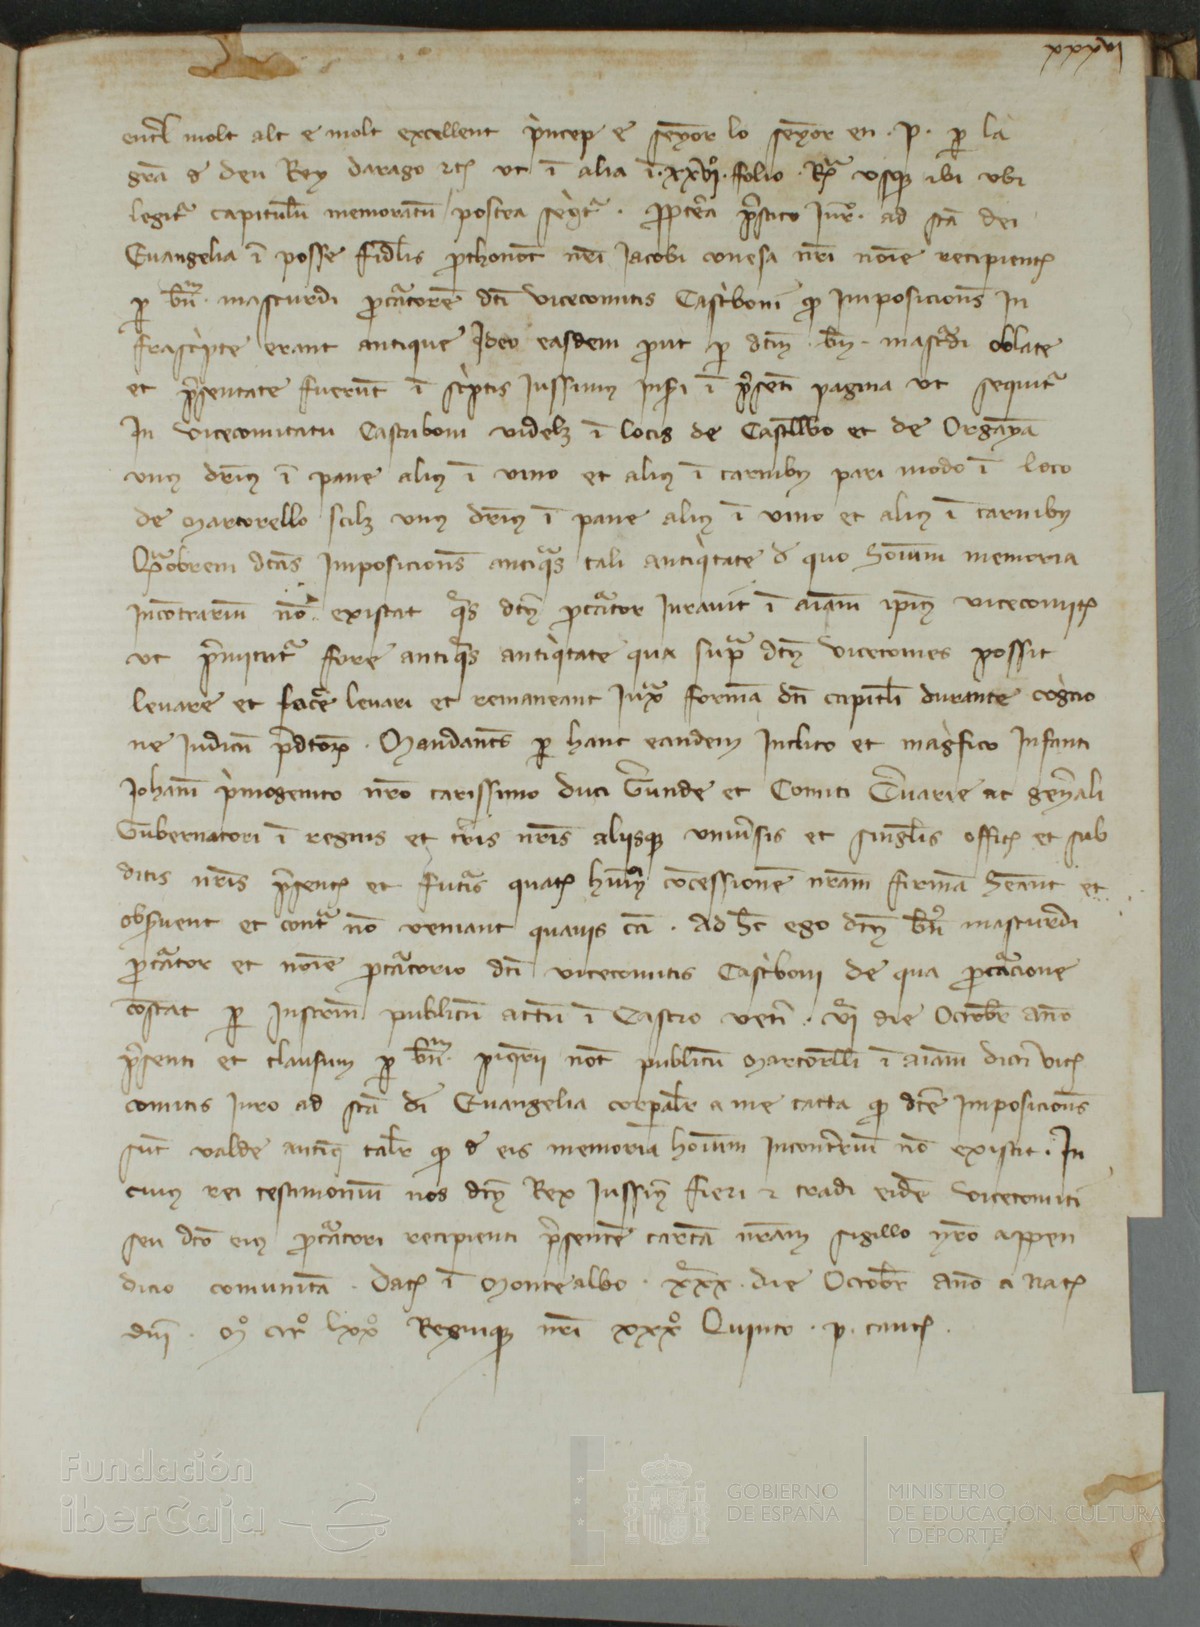 xxxvi
entrel molt alt e molt excellent princep e senyor lo senyor en .p. per la
gra de deu Rey darago etc ut i alia i .xxvio. folio Rta usque ibi ubi
legitr capitulu memoratu postea seqtr . ppterea prestito Jurº. ad sca dei
Euangelia i posse fidelis prothonot nri Jacobi conesa nri noie recipientis
p bn. mascurdi procatore dci vicecomitis Castriboni q Imposicions In
frascripte erant antique Ideo easdem prout p dcm .bn. mascurdi oblate
et presentate fuerut i scriptis Jussimus inseri i presenti pagina ut sequitr
In vicecomitatu Castriboni videlz i locis de Castellbo et de Organya
unus drius i pane alius i vino et alius i carnibus pari modo i loco
de Martorello scilz unus drius i pane alius i vino et alius i carnibus
Quaobrem dcas Imposicions antiqas tali antiqtate de quo hoium memoria
Incontrarium no existat qas dcus procator Jurauit i aiam ipius vicecomitis
ut premititr fore antiqas antiqtate qua supra dcus vicecomes possit
leuare et facere leuari et remaneant Juxa forma dci capitli durante cognicio
ne Judicu predcorum . Mandantes p hanc eandem Inclito et magnifico Infanti
Johani primogenito nro carissimo duci Gerunde et Comiti Ceruarie ac generali
Gubernatori i regnis et terris nris aliisque uniuersis et singulis offic et sub
ditis nris presentis et futuris quatus huius concessione nram firma heant et
obseruent et contra no veniant quauis ca . Ad hec ego dcus bn mascurdi
procator et noie procatorio dci vicecomitis Castriboni de qua procacione
constat p Instrm publicu actu i Castro veti . vi die Octobr ano
presenti et clausum p bn. piqrii not publicu Martorelli i aiam dicti vic
comitis Juro ad sca di Euangelia corpalr a me tacta q dce Imposicions
sut valde antiq talr q de eis memoria hoium Incontrium no existit . In
cuius rei testimonium nos dcus Rex Jussimus fieri et tradi eide vicecomiti
seu dco eius procatori recipienti presente carta nram sigillo nro appen
dicio comunita . Dat i Montealbo . xxx . die Octobr ano a Nat
dni . Mº CCCº lxxº Regnique nri xxxº Quinto . p. canc .
Fundación
iberCaja
GOBIERNO
DE ESPAÑA
MINISTERIO
DE EDUCACIÓN, CULTURA
Y DEPORTE